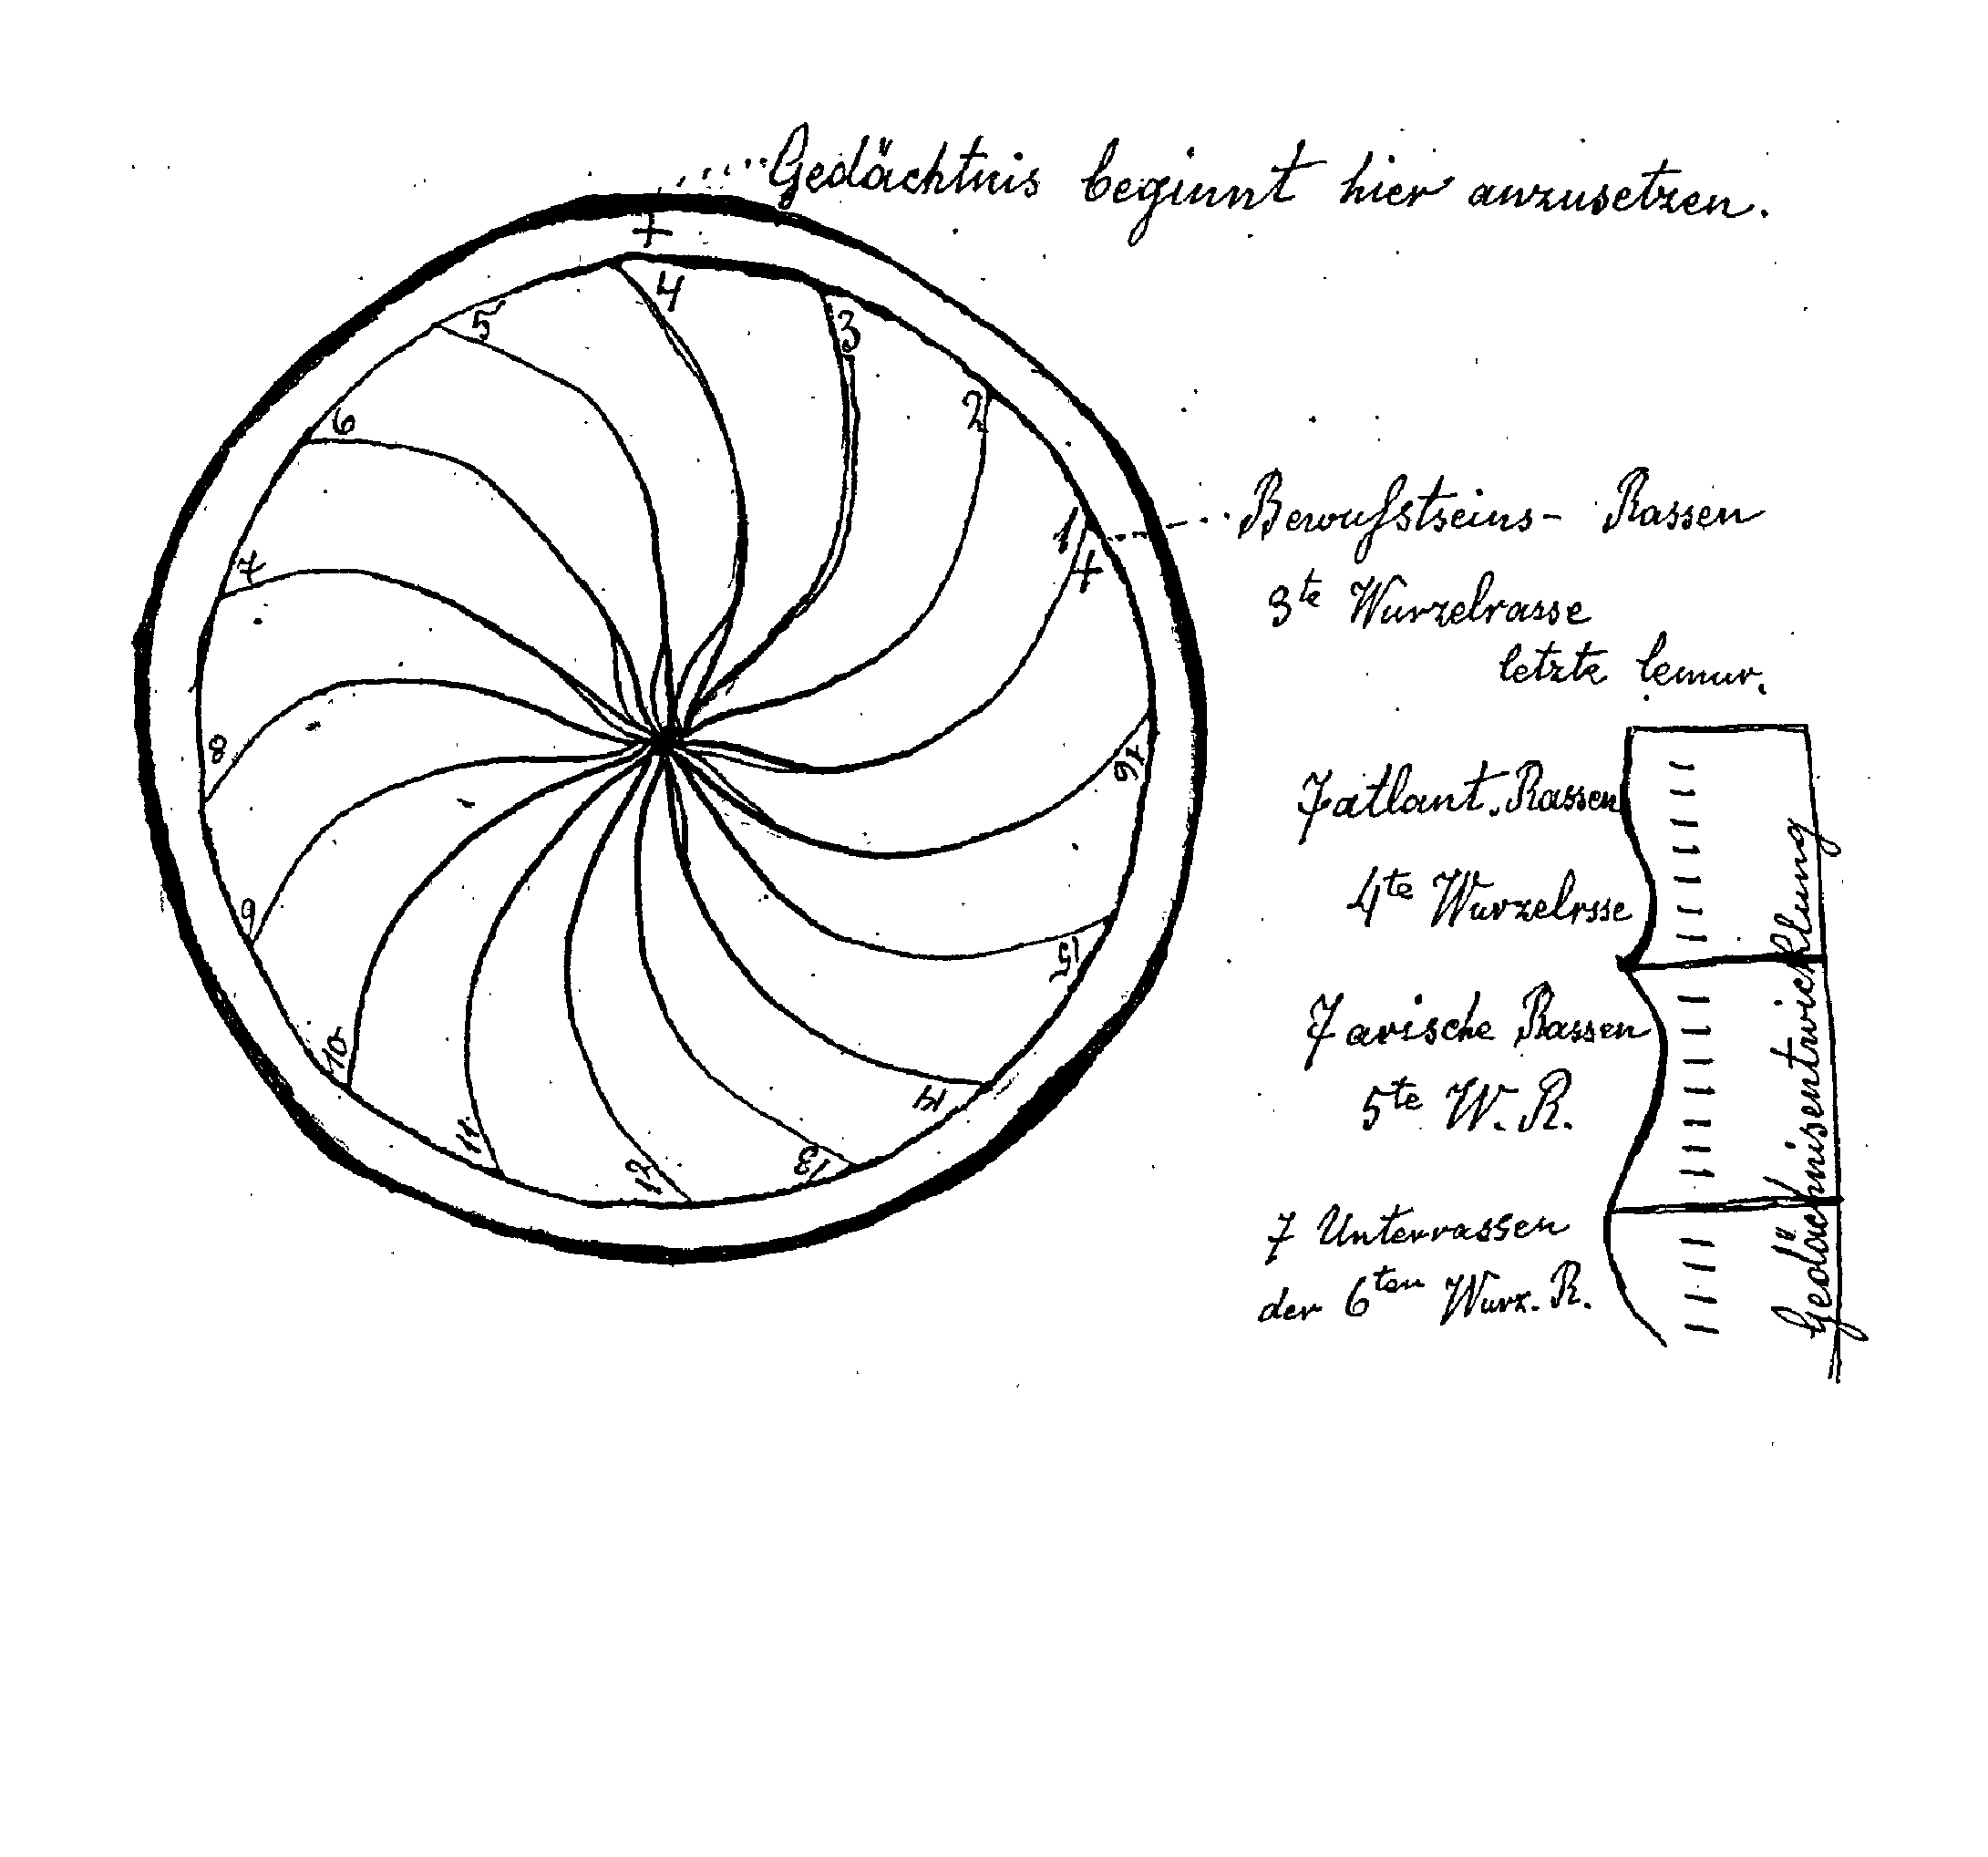 Gedächtnis beginnt hier anzusetzen.
+
4
3
5
2
6
1
+
7
8
16
9
15
10
14
11
13
12
Bewußtseins- Rassen
3te Wurzelrasse
letzte lemur.
7 atlant. Rassen
4te Wurzelrsse
7 arische Rassen
5te W. R.
7 Unterrassen
der 6ten Wurz. R.
Gedächtnisentwicklung